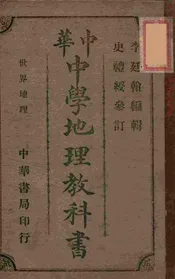 李廷翰編輯
史禮綬參訂
中華
中學地理教科書
世界地理
中華書局印行